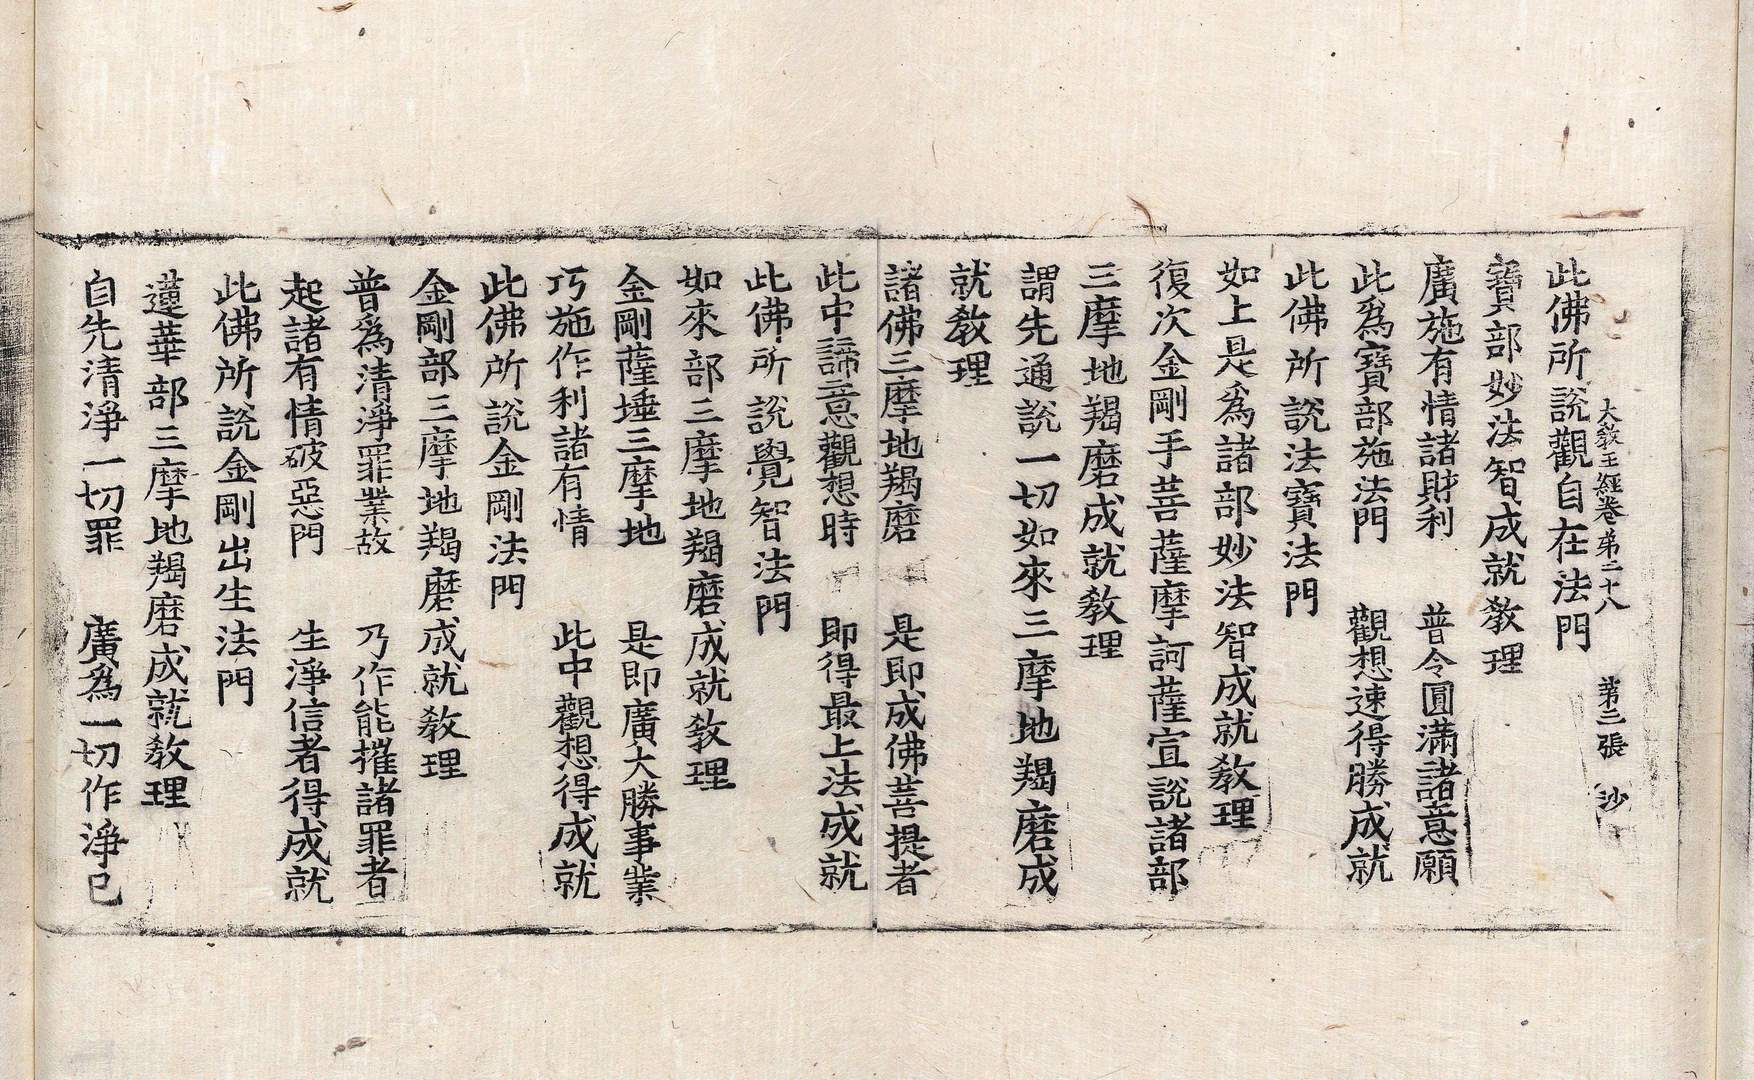 大教王經卷第二十八 第三張 沙
此佛所說觀自在法門
寶部妙法智成就教理
廣施有情諸財利 普令圓滿諸意願
此為寶部施法門 觀想速得勝成就
此佛所說法寶法門
如上是為諸部妙法智成就教理
復次金剛手菩薩摩訶薩宣說諸部
三摩地羯磨成就教理
謂先通說一切如來三摩地羯磨成
就教理
諸佛三摩地羯磨 是即成佛菩提者
此中諦意觀想時 即得最上法成就
此佛所說覺智法門
如來部三摩地羯磨成就教理
金剛薩埵三摩地 是即廣大勝事業
巧施作利諸有情 此中觀想得成就
此佛所說金剛法門
金剛部三摩地羯磨成就教理
普為清淨罪業故 乃作能摧諸罪者
起諸有情破惡門 生淨信者得成就
此佛所說金剛出生法門
蓮華部三摩地羯磨成就教理
自先清淨一切罪 廣為一切作淨已